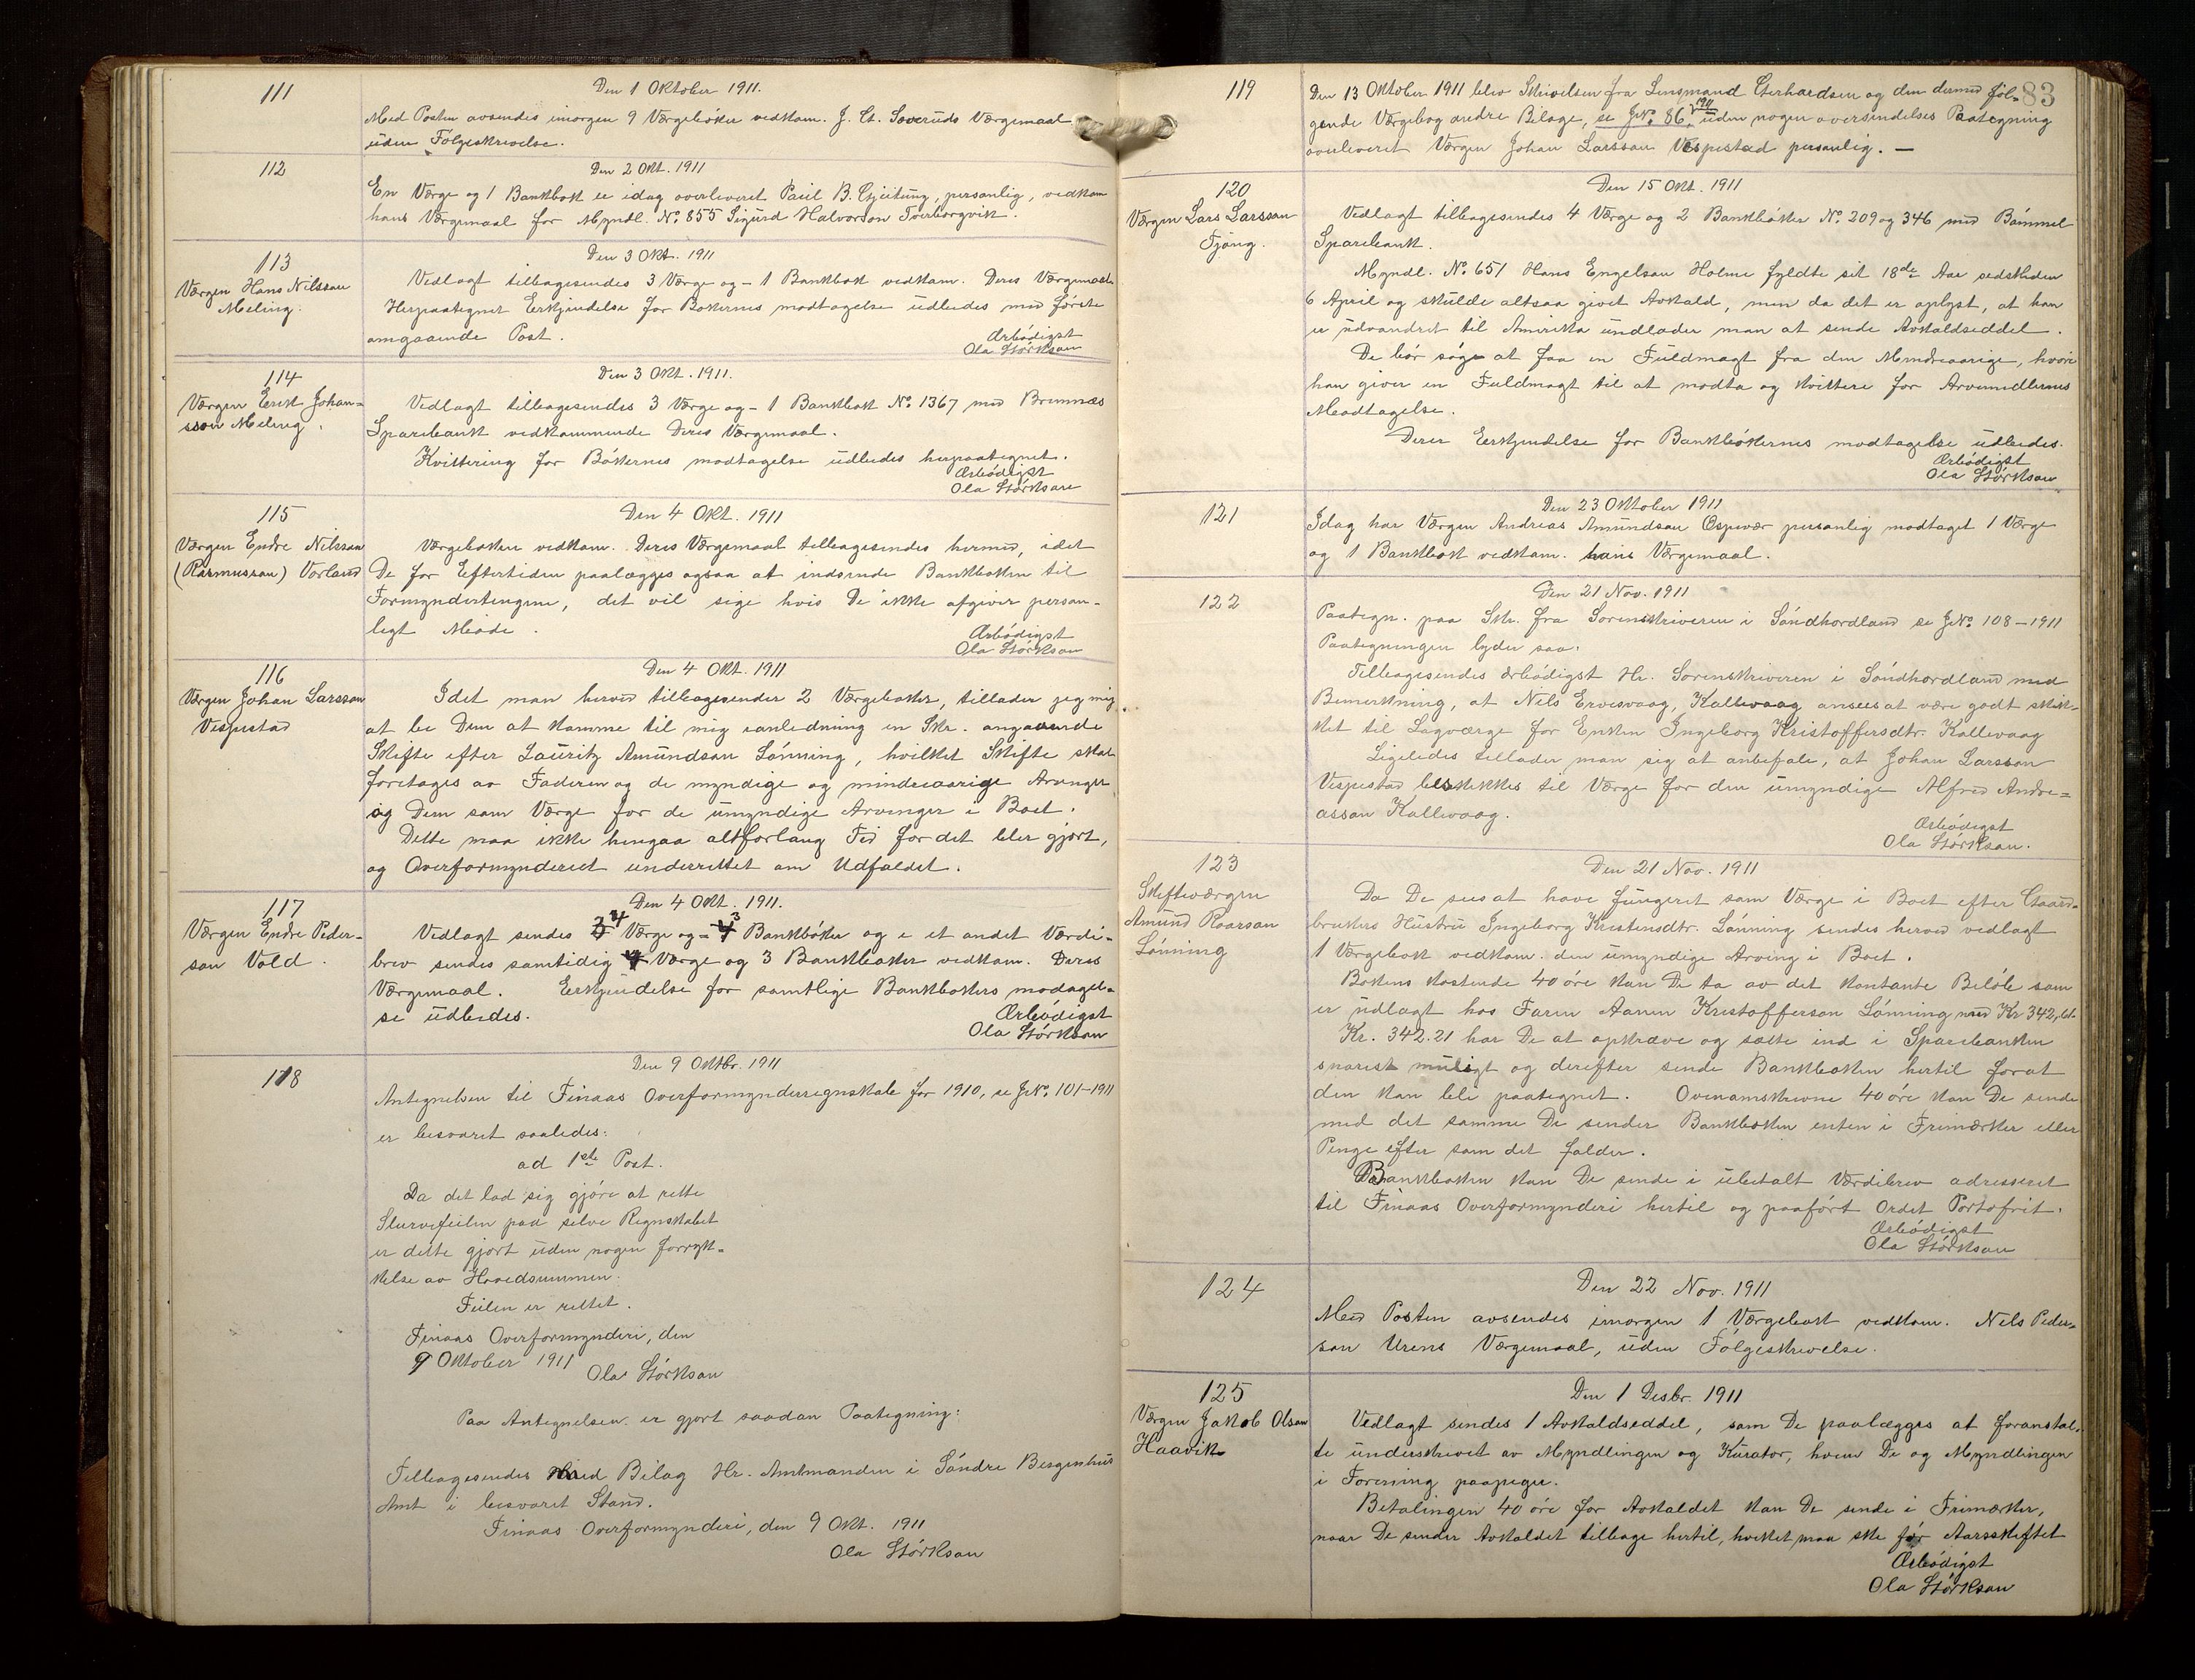 111
Den 1 Oktober 1911.
Med Posten avsendes imorgen 9 Værgebøker vedkom. J. Ct. Soveruds Værgemaal
uden Følgeskrivelse.
112
Den 2 Okt. 1911
En Værge og 1 Bankbok er idag overleveret Paul B. Gjeitung, personlig, vedkom
hans Værgemaal for Myndl. No. 855 Sigurd Halvorson Toverborgvik.
113
Værgen Hans Nilsson
Meling.
Den 3 Okt. 1911
Vedlagt tilbagesendes 3 Værge og - 1 Bankbok vedkom. Deres Værgemaal.
Herpaategnet Erkjendelse for Bøkernes modtagelse udbedes med første
omgaaende Post.
Ærbødigst
Ola Størkson
114
Værgen Erik Johan=
sson Meling.
Den 3 Okt. 1911.
Vedlagt tilbagesendes 3 Værge og - 1 Bankbok No. 1367 med Bremnæs
Sparebank vedkommende Deres Værgemaal.
Kvittering for Bøkernes modtagelse udbedes herpaategnet.
Ærbødigst
Ola Størkson
115
Værgen Endre Nilsson
(Rasmusson) Vorland
Den 4 Okt. 1911
Værgeboken vedkom. Deres Værgemaal tilbagesendes hermed, idet
De for Eftertiden paalægges ogsaa at indsende Bankboken til
Formyndertingene, det vil sige hvis De ikke afgiver person-
ligt Møde.
Ærbødigst
Ola Størkson
116
Værgen Johan Larsson
Vespestad
Den 4 Okt. 1911
Idet man herved tilbagesender 2 Værgebøker, tillader jeg mig
at be Dem at komme til mig ianledning en Skr. angaaende
Skifte efter Lauritz Amundson Lønning, hvilket Skifte skal
foretages av Faderen og de myndige og mindreaarige Arvinger
og Dem som Værge for de umyndige Arvinger i Boet.
Dette maa ikke hengaa altforlang Tid før det blir gjort,
og Overformynderiet underrettet om Udfaldet.
117
Værgen Endre Peder-
son Vold.
Den 4 Okt. 1911.
Vedlagt sendes 4 Værge og - 3 Bankbøker og i et andet Værdi-
brev sendes samtidig 4 Værge og 3 Bankbøker vedkom. Deres
Værgemaal. Erkjendelse for samtlige Bankbøkers modagel-
se udbedes.
Ærbødigst
Ola Størkson
118
Den 9 Oktbr. 1911
Antegnelsen til Finaas Overformynderregnskab for 1910, se J.No. 101-1911
er besvaret saaledes:
ad 1ste Post.
Da det lod sig gjøre at rette
Slurvefeilen paa selve Regnskabet
er dette gjort uden nogen forryk-
kelse av Hovedsummen.
Feilen er rettet.
Finaas Overformynderi, den
9 Oktober 1911
Ola Størkson
Paa Antegnelsen er gjort saadan Paategning:
Tilbagesendes med Bilag Hr. Amtmanden i Søndre Bergenhus
Amt i besvaret Stand.
Finaas Overformynderi, den 9 Okt. 1911
Ola Størkson
83
119
Den 13 Oktober 1911 blev Skrivelsen fra Lensmand Gerhardsen og den dermed føl-
gende Værgebog andre Bilage, se J.No. 86, 1911 uden nogen oversendelses Paategning
overleveret Værgen Johan Larsson Vespestad personlig. —
120
Værgen Lars Larsson
Tjong.
Den 15 Okt. 1911
Vedlagt tilbagesendes 4 Værge og 2 Bankbøker No. 209 og 346 med Bømmel
Sparebank.
Myndl. No. 651 Hans Engelson Holme fyldte sit 18de Aar sidstleden
6 April og skulde altsaa givet Avkald, men da det er oplyst, at han
er udvandret til Amerika undlader man at sende Avkaldseddel.
De bør søge at faa en Fuldmagt fra den Mindreaarige, hvori
han giver en Fuldmagt til at modta og kvittere for Arvemidlernes
Modtagelse.
Deres Erkjendelse for Bankbøkernes modtagelse udbedes.
Ærbødigst
Ola Størkson
121
Den 23 Oktober 1911
Idag har Værgen Andreas Amundson Espevær personlig modtaget 1 Værge
og 1 Bankbok vedkom. hans Værgemaal.
122
Den 21 Nov. 1911
Paategn. paa Skr. fra Sorenskriveren i Søndhordland se J.No. 108-1911
Paategningen lyder saa:
Tilbagesendes ærbødigst Hr. Sorenskriveren i Søndhordland med
Bemerkning, at Nils Ervesvaag, Kallevaag ansees at være godt skik-
ket til Lagværge for Enken Ingeborg Kristoffersdtr. Kallevaag
Ligeledes tillader man sig at anbefale, at Johan Larsson
Vespestad beskikkes til Værge for den umyndige Alfred Andre=
asson Kallevaag.
Ærbødigst
Ola Størkson.
123
Skifteværgen
Amund Roarson
Lønning
Den 21 Nov. 1911
Da De sees at have fungeret som Værge i Boet efter Gaard-
brukers Hustru Ingeborg Kristensdtr. Lønning sendes herved vedlagt
1 Værgebok vedkom. den umyndige Arving i Boet.
Bokens kostende 40 øre kan De ta av det kontante Beløb som
er udlagt hos Faren Aamen Kristofferson Lønning med Kr 342,61.
Kr. 342.21 har De at opkræve og sætte ind i Sparebanken
snarest muligt og derefter sende Bankboken hertil forat
den kan bli paategnet. Ovenomskrevne 40 øre kan De sende
med det samme De sender Bankboken enten i Frimærker eller
Penge efter som det falder.
Bankboken kan De sende i ubetalt Værdibrev adresseret
til Finaas Overformynderi hertil og paaført Ordet Portofrit.
Ærbødigst
Ola Størkson
124
Den 22 Nov. 1911
Med Posten avsendes imorgen 1 Værgebok vedkom. Nils Peder-
son Urens Værgemaal, uden Følgeskrivelse.
125
Værgen Jakob Olson
Haavik
Den 1 Desbr. 1911
Vedlagt sendes 1 Avkaldseddel, som De paalægges at foranstal-
te underskrevet av Myndlingen og Kurator, hvem De og Myndlingen
i Forening paapeger.
Betalingen 40 øre for Avkaldet kan De sende i Frimærker,
naar De sender Avkaldet tilbage hertil, hvilket maa ske før Aarsskiftet
Ærbødigst
Ola Størkson